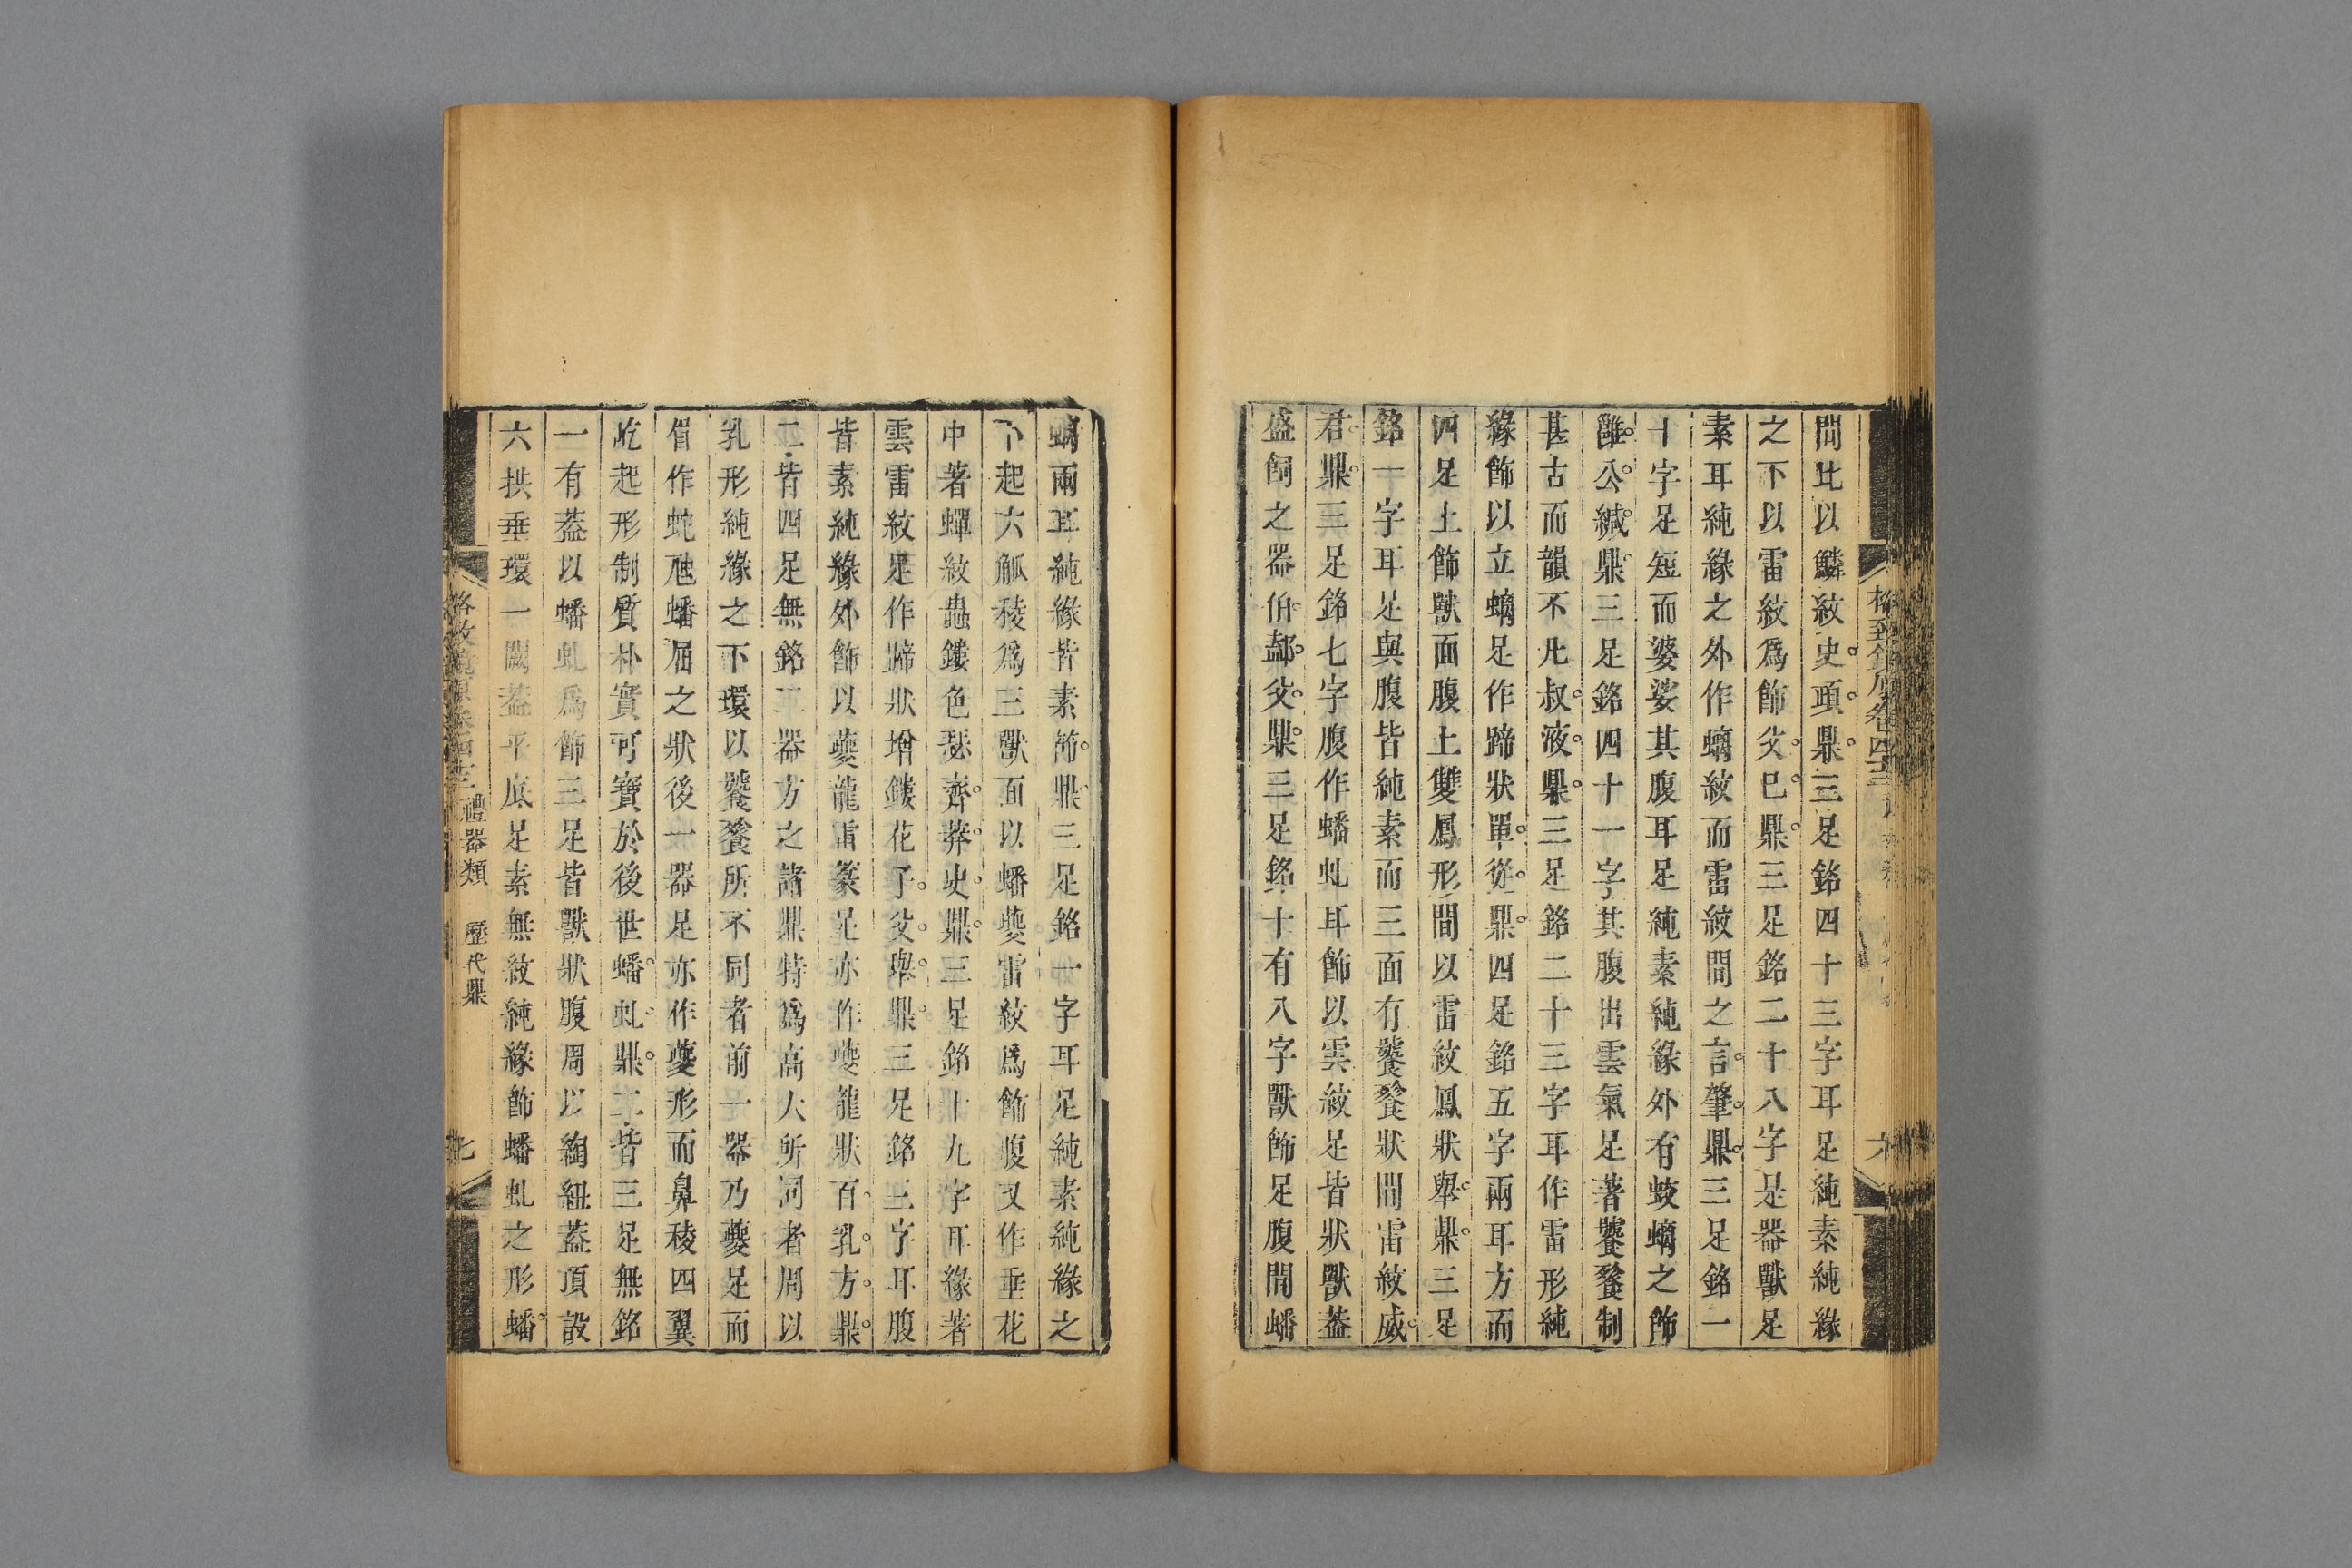 格致鏡原卷四十三
六
間比以鱗紋史頙鼎三足銘四十三字耳足純素純緣
之下以雷紋爲飾父巳鼎三足銘二十八字是器獸足
素耳純緣之外作螭紋而雷紋間之言肇鼎三足銘一
十字足短而婆娑其腹耳足純素純緣外有蛟螭之飾
雝公緘鼎三足銘四十一字其腹出雲氣足著饕餮制
甚古而韻不凡叔液鼎三足銘二十三字耳作雷形純
緣飾以立螭足作蹄狀單從鼎四足銘五字兩耳方而
四足上飾獸面腹上雙鳳形間以雷紋鳳狀舉鼎三足
銘一字耳足與腹皆純素而三面有饕餮狀間雷紋威
君鼎三足銘七字腹作蟠虬耳飾以雲紋足皆狀獸葢
盛飼之器伯父鼎三足銘十有八字獸飾足腹間蟠
螭兩耳純緣皆素節鼎三足銘一字耳足純素純緣之
下起六觚稜爲三獸面以蟠夔雷紋爲飾腹又作垂花
中著蟬紋蟲鏤色瑟齊莽史鼎三足銘十九字耳緣著
雲雷紋足作蹄狀增鏤花子父舉鼎三足銘三字耳腹
皆素純緣外飾以夔龍雷篆足亦作夔龍狀百乳方鼎
二皆四足無銘二器方之諸鼎特爲高大所同者周以
乳形純緣之下環以饕餮所不同者前一器乃夔足而
眉作蛇虺蟠屈之狀後一器足亦作夔形而鼻稜四翼
屹起形制質朴實可寶於後世蟠虬鼎二皆三足無銘
一有葢以蟠虬爲飾三足皆獸狀腹周以綯紐葢頂設
六拱垂環一闕葢平底足素無紋純緣飾蟠虬之形蟠
格致鏡原卷四十三 禮器類 歷代鼎
七